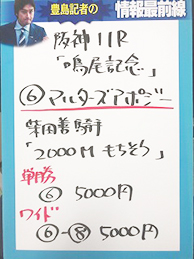 豊島記者の
情報最前線
阪神11R
「鳴尾記念」
⑥マルターズアポジー
柴田善騎手
「2000Mもちそう」
単勝
⑥ 5000円
ワイド
⑥-⑧ 5000円